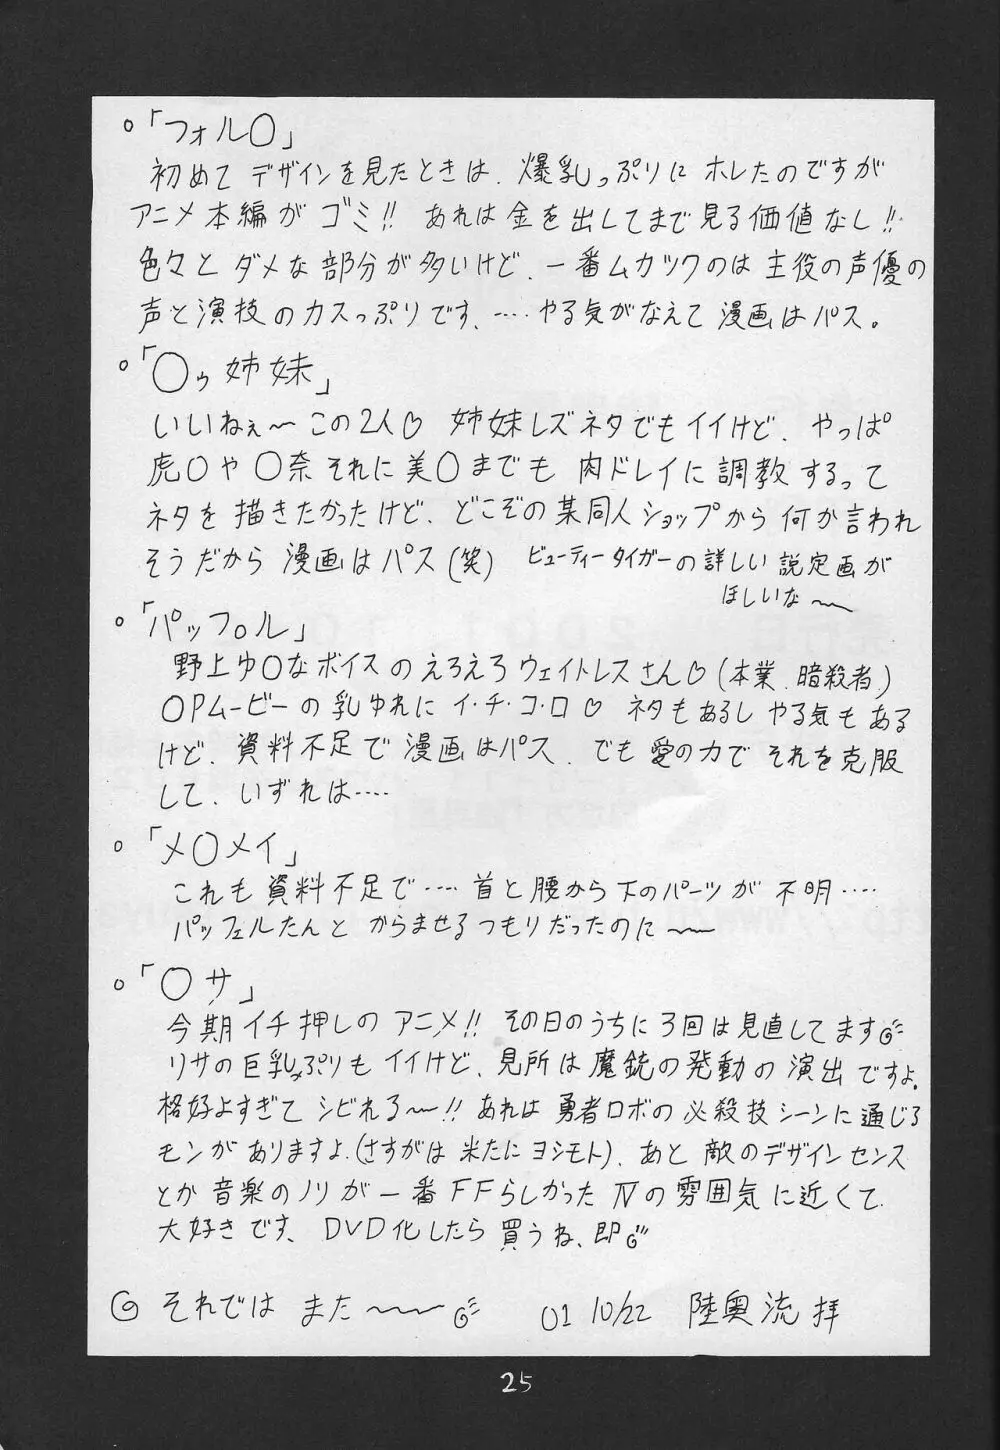 。「フォル〇」
初めて デザインを見たときは、爆乳っぷりに ホレたのですが
アニメ本編が ゴミ!! あれは金を出してまで見る価値なし!!
色々と ダメな部分が多いけど、一番ムカツクのは 主役の声優の
声と演技のカスっぷりです、‥‥やる気がなえて 漫画はパス。
。「〇ゥ姉妹」
いいねぇ〜この2人♡ 姉妹レズネタでもイイけど、やっぱ
虎〇や〇奈それに美〇までも 肉ドレイに調教するって
ネタを描きたかったけど、どこぞの某同人ショップから何か言われ
そうだから 漫画はパス(笑) ビューティータイガーの詳しい設定画が
ほしいな〜
。「パッフ〇ル」
野上ゆ〇なボイスのえろえろウェイトレスさん♡(本業、暗殺者)
OPムービーの乳ゆれにイ・チ・コ・ロ♡ ネタもあるしやる気もある
けど、資料不足で漫画はパス、でも愛の力でそれを克服
して、いずれは‥‥
。「メ〇メイ」
これも資料不足で‥‥首と腰から下のパーツが不明‥‥
パッフェルたんと からませるつもりだったのに〜
。「〇サ」
今期イチ押しのアニメ!! その日のうちに3回は見直してます
リサの巨乳っぷりもイイけど、見所は魔銃の発動の演出ですよ、
格好よすぎて シビれる〜!! あれは勇者ロボの必殺技シーンに通じる
モンがありますよ、(さすがは 米たにヨシモト)、あと敵のデザインセンス
とか音楽のノリが一番FFらしかったⅣの雰囲気に近くて
大好きです、DVD化したら買うね、即
それでは また〜 01 10/22 陸奥流 拝
25